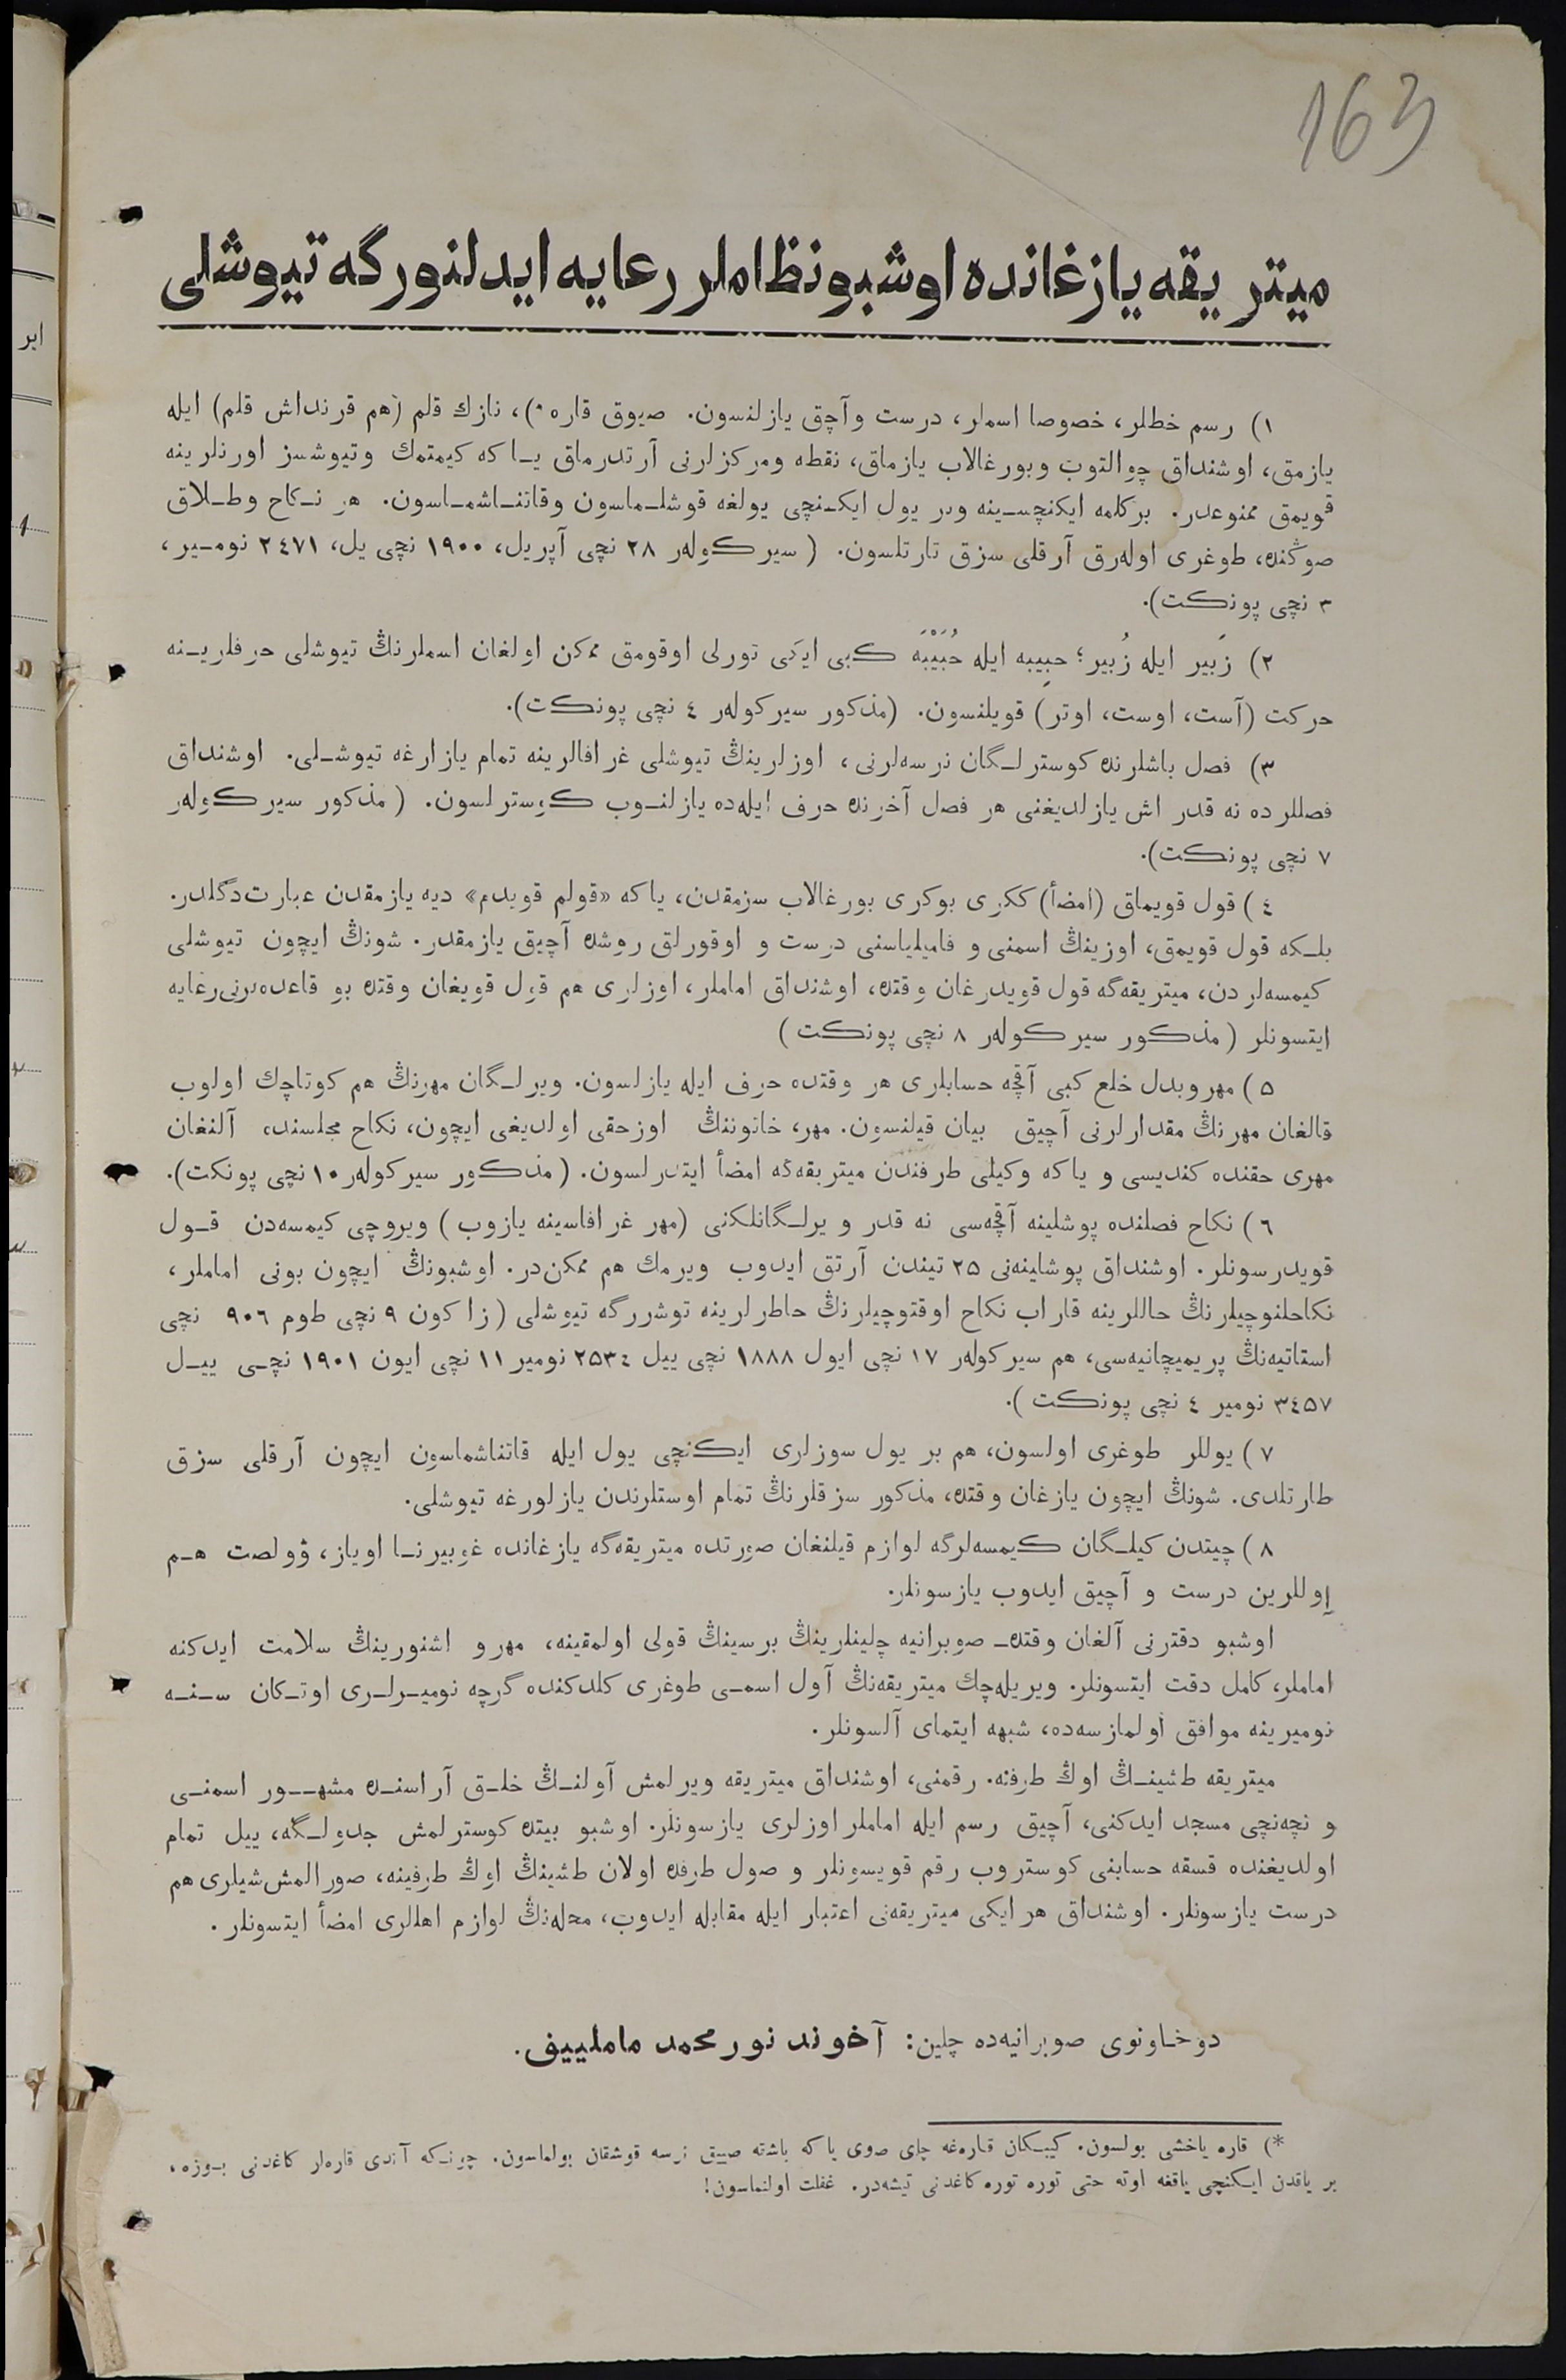 163
ميتريقه يازغانده اوشبو نظاملر رعايه ايدلنورگه تيوشلى
١) رسم خطلر، خصوصا اسملر، درست وآچق يازلنسون. صيوق قاره *)، نازك قلم (هم قرنداش قلم) ايله
يازمق، اوشنداق چوالتوب وبورغالاب يازماق، نقطه ومركزلرنى آرتدرماق يا كه كيمتمك وتيوشسز اورنلرينه
قويمق ممنوعدر. بركلمه ايكنچسينه وبر يول ايكنچى يولغه قوشلماسون وقاتناشماسون. هر نكاح وطلاق
صوڭنده، طوغرى اوله‌رق آرقلى سزق تارتلسون. (سيركولەر ٢٨ نچى آپريل، ١٩٠٠ نچى يل، ٢٤٧١ نومير،
٣ نچى پونكت).
٢) زَبير ايله زُبير؛ حبِيبه ايله حُبَيْبَه كبى ايكى تورلى اوقومق ممكن اولغان اسملرنڭ تيوشلى حرفلرينه
حركت (آست، اوست، اوتر) قويلنسون. (مذكور سيركولەر ٤ نچى پونكت).
٣) فصل باشلرنده كوسترلگان نرسه‌لرنى، اوزلرينڭ تيوشلى غرافالرينه تمام يازارغه تيوشلى. اوشنداق
فصللرده نه قدر اش يازلديغنى هر فصل آخرنده حرف ايله‌ده يازلنوب كوسترلسون. (مذكور سيركولەر
٧ نچى پونكت).
٤) قول قويماق (امضأ) ككرى بوكرى بورغالاب سزمقدن، ياكه «قولم قويدم» ديه يازمقدن عبارت دگلدر.
بلكه قول قويمق، اوزينڭ اسمنى و فاميلياسنى درست و اوقورلق روشده آچيق يازمقدر. شونڭ ايچون تيوشلى
كيمسه‌لردن، ميتريقه‌گه قول قويدرغان وقتده، اوشنداق اماملر، اوزلرى هم قول قويغان وقتده بو قاعده‌لرنى رعايه
ايتسونلر (مذكور سيركولەر ٨ نچى پونكت)
٥) مهر وبدل خلع كبى آقچه حسابلرى هر وقتده حرف ايله يازلسون. ويرلگان مهرنڭ هم كوتاچك اولوب
قالغان مهرنڭ مقدارلرنى آچيق بيان قيلنسون. مهر، خاتوننڭ اوزحقى اولديغى ايچون، نكاح مجلسنده آلنغان
مهرى حقنده كنديسى و ياكه وكيلى طرفندن ميتريقه‌گه امضأ ايتدرلسون. (مذكور سيركولەر ١٠ نچى پونكت).
٦) نكاح فصلنده پوشلينه آقچه‌سى نه قدر ويرلگانلكنى (مهر غرافاسينه يازوب) ويروچى كيمسه‌دن قول
قويدرسونلر. اوشنداق پوشلينه‌نى ٢٥ تيندن آرتق ايدوب ويرمك هم ممكن‌در. اوشبونڭ ايچون بونى اماملر،
نكاحلنوچيلرنڭ حاللرينه قاراب نكاح اوقتوچيلرنڭ خاطرلرينه توشررگه تيوشلى (زاكون ٩ نچى طوم ٩٠٦ نچى
استاتيه‌نڭ پريميچانيه‌سى، هم سيركولەر ١٧ نچى ايول ١٨٨٨ نچى ييل ٢٥٣٤ نومير ١١ نچى ايون ١٩٠١ نچى ييل
٣٤٥٧ نومير ٤ نچى پونكت).
٧) يوللر طوغرى اولسون، هم بر يول سوزلرى ايكنچى يول ايله قاتناشماسون ايچون آرقلى سزق
طارتلدى. شونڭ ايچون يازغان وقتده، مذكور سزقلرنڭ تمام اوستلرندن يازلورغه تيوشلى.
٨) چيتدن كيلگان كيمسه‌لرگه لوازم قيلنغان صورتده ميتريقه‌گه يازغانده غوبيرنا اوياز، ۋولصت هم
اوللرين درست و آچيق ايدوب يازسونلر.
اوشبو دفترنى آلغان وقتده صوبرانيه چلينلرينڭ برسينڭ قولى اولمقينه، مهر و اشنورينڭ سلامت ايدكنه
اماملر، كامل دقت ايتسونلر. ويريله‌چك ميتريقه‌نڭ آول اسمى طوغرى كلدكنده گرچه نوميرلرى اوتكان سنه
نوميرينه موافق اولمازسه‌ده، شبهه ايتماى آلسونلر.
ميتريقه طشينڭ اوڭ طرفنه. رقمنى، اوشنداق ميتريقه ويرلمش آولنڭ خلق آراسنده مشهور اسمنى
و نچه‌نچى مسجد ايدكنى، آچيق رسم ايله اماملر اوزلرى يازسونلر. اوشبو بيتده كوسترلمش جدولگه، ييل تمام
اولديغنده قسقه حسابنى كوستروب رقم قويسونلر و صول طرفده اولان طشينڭ اوڭ طرفينه، صورالمش شيلرى هم
درست يازسونلر. اوشنداق هر ايكى ميتريقه‌نى اعتبار ايله مقابله ايدوب، محله‌نڭ لوازم اهللرى امضأ ايتسونلر.
دوخاونوى صوبرانيه‌ده چلين: آخوند نورمحمد ماملييف.
*) قاره ياخشى بولسون. كيبكان قاره‌غه چاى صوى ياكه باشته صييق نرسه قوشقان بولماسون. چونكه آندى قاره‌لر كاغدنى بوزه،
بر ياقدن ايكنچى ياققه اوته حتى توره توره كاغدنى تيشه‌در. غفلت اولنماسون!
ابر